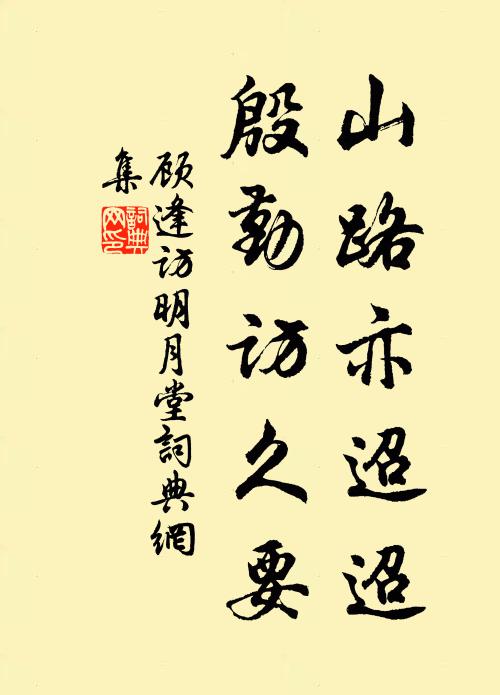 山路亦迢迢
殷勤访久要
顾逢访明月堂詞典網
集
詞典
网印